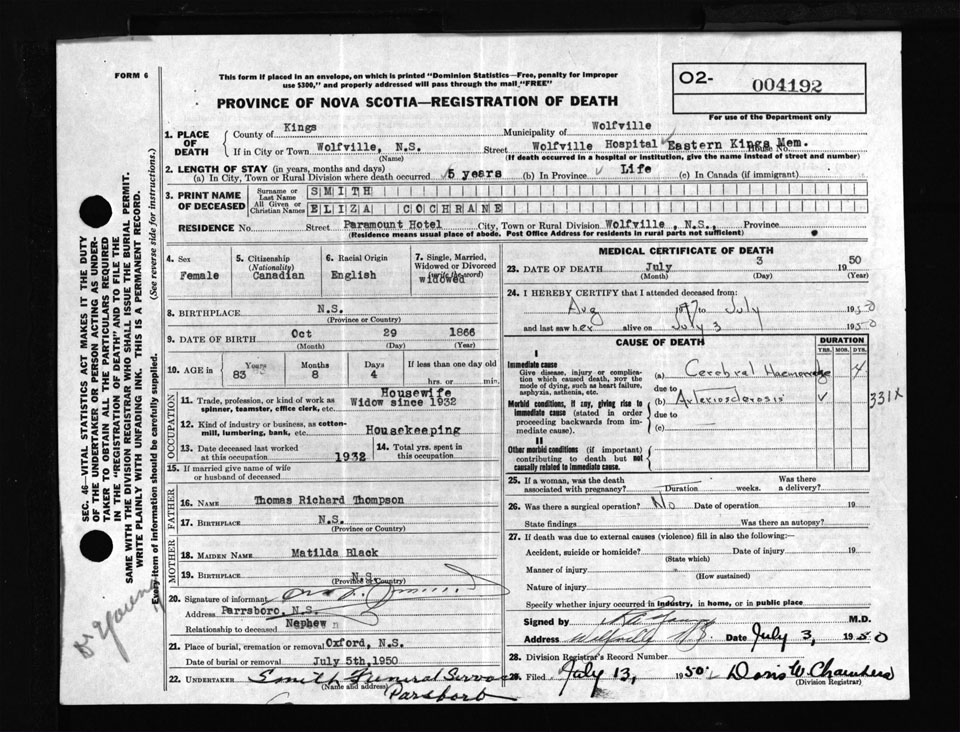 FORM 6
This form if placed in an envelope, on which is printed "Dominion Statistics—Free, penalty for improper
use $300," and properly addressed will pass through the mail "FREE"
O2- 004192
For use of the Department only
PROVINCE OF NOVA SCOTIA—REGISTRATION OF DEATH
1. PLACE OF DEATH
County of Kings Municipality of Wolfville
If in City or Town Wolfville, N.S. Street Wolfville Hospital Eastern Kings Mem. House No.
(Name) (If death occurred in a hospital or institution, give the name instead of street and number)
2. LENGTH OF STAY (in years, months and days)
(a) In City, Town or Rural Division where death occurred 5 years (b) In Province Life (c) In Canada (if immigrant)
3. PRINT NAME OF DECEASED
Surname or Last Name SMITH
All Given or Christian Names ELIZA COCHRANE
RESIDENCE No. Street Paramount Hotel City, Town or Rural Division Wolfville, N.S., Province
(Residence means usual place of abode. Post Office Address for residents in rural parts not sufficient)
4. Sex Female
5. Citizenship (Nationality) Canadian
6. Racial Origin English
7. Single, Married, Widowed or Divorced (write the word) widowed
8. BIRTHPLACE N.S.
(Province or Country)
9. DATE OF BIRTH Oct 29 1866
(Month) (Day) (Year)
10. AGE in Years 83 Months 8 Days 4 If less than one day old
hrs. or min.
OCCUPATION
11. Trade, profession, or kind of work as spinner, teamster, office clerk, etc. Housewife
Widow since 1932
12. Kind of industry or business, as cotton-mill, lumbering, bank, etc. Housekeeping
13. Date deceased last worked at this occupation 1932
14. Total yrs. spent in this occupation
15. If married give name of wife or husband of deceased
FATHER
16. NAME Thomas Richard Thompson
17. BIRTHPLACE N.S.
(Province or Country)
MOTHER
18. MAIDEN NAME Matilda Black
19. BIRTHPLACE N.S.
(Province or Country)
20. Signature of informant
Address Parrsboro, N.S.
Relationship to deceased Nephew
21. Place of burial, cremation or removal Oxford, N.S.
Date of burial or removal July 5th, 1950
22. UNDERTAKER Smith Funeral Service
(Name and address) Parsborb
MEDICAL CERTIFICATE OF DEATH
23. DATE OF DEATH July 3 1950
(Month) (Day) (Year)
24. I HEREBY CERTIFY that I attended deceased from:
Aug to July 1950
and last saw her alive on July 3 1950
CAUSE OF DEATH
DURATION
YRS. MOS. DYS.
I
Immediate cause
Give disease, injury or complication which caused death, NOT the mode of dying, such as heart failure, asphyxia, asthenia, etc.
(a) Cerebral Haemorrage 4
due to
Morbid conditions, if any, giving rise to immediate cause (stated in order proceeding backwards from immediate cause).
(b) Arteriosclerosis
331X
due to
(c)
II
Other morbid conditions (if important) contributing to death but not causally related to immediate cause.
25. If a woman, was the death associated with pregnancy? Duration weeks. Was there a delivery?
26. Was there a surgical operation? No Date of operation 19
State findings Was there an autopsy?
27. If death was due to external causes (violence) fill in also the following:—
Accident, suicide or homicide? Date of injury 19
(State which)
Manner of injury
(How sustained)
Nature of injury
Specify whether injury occurred in industry, in home, or in public place
Signed by M.D.
Address Wolfville N.S. Date July 3, 1950
28. Division Registrar's Record Number
29. Filed July 13, 1950 Doris W. Chambers
(Division Registrar)
SEC. 46—VITAL STATISTICS ACT MAKES IT THE DUTY
OF THE UNDERTAKER OR PERSON ACTING AS UNDER-
TAKER TO OBTAIN ALL THE PARTICULARS REQUIRED
IN THE "REGISTRATION OF DEATH" AND TO FILE THE
SAME WITH THE DIVISION REGISTRAR WHO SHALL ISSUE THE BURIAL PERMIT.
WRITE PLAINLY WITH UNFADING INK. THIS IS A PERMANENT RECORD.
Every item of information should be carefully supplied. (See reverse side for instructions.)
Dr Young